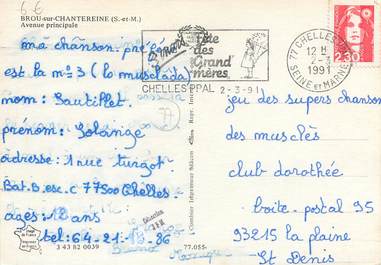 6€
BROU-sur-CHANTEREINE (S.-et-M.)
Avenue principale
ma chanson préfé
est la nº3 (la musclada
nom: Sautillet.
prénom: Solange
adresse: 1 rue turgot.
Bat. B. esc. c 77500 Chelles.
ages: 12 ans
tel: 64-21-13-86
3 43 82 0039
77.055.
Fête
des
Grand'
mères
CHELLES PPAL 2-3-91
77 CHELLES PPAL
12 H
2-3
1991
SEINE ET MARNE
2,30
jeu des supers chanson
des musclés
club dorothée
boite postal 95
93215 la plaine
St Denis